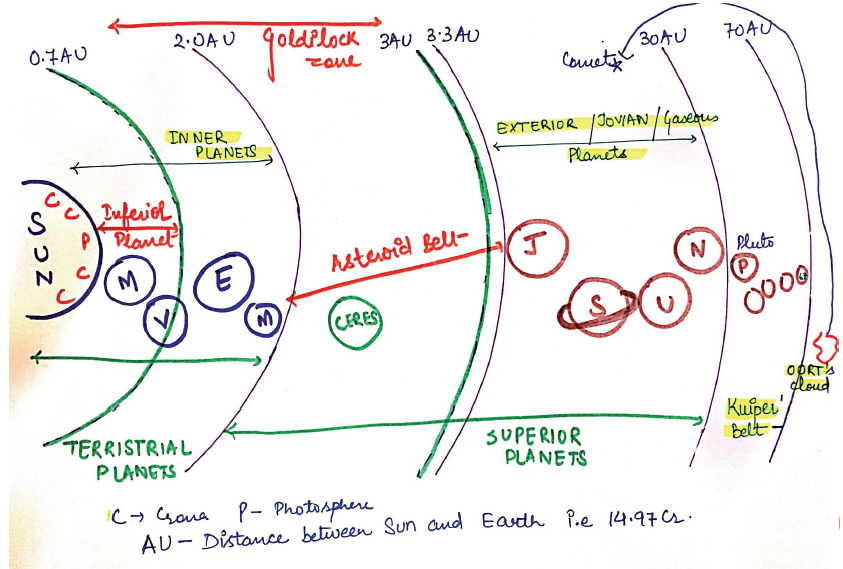 0.7AU
2.0AU
Goldilock
zone
3AU
3.3AU
Comets
30AU
70AU
INNER
PLANETS
EXTERIOR / JOVIAN / Gaseous
Planets
SUN
C
C
P
C
C
Inferior
Planet
M
V
E
M
Asteroid Belt
CERES
J
S
U
N
Pluto
P
OORT's
Cloud
Kuiper
Belt
TERRISTRIAL
PLANETS
SUPERIOR
PLANETS
C → Crona P - Photosphere
AU - Distance between Sun and Earth i.e 14.97Cr.